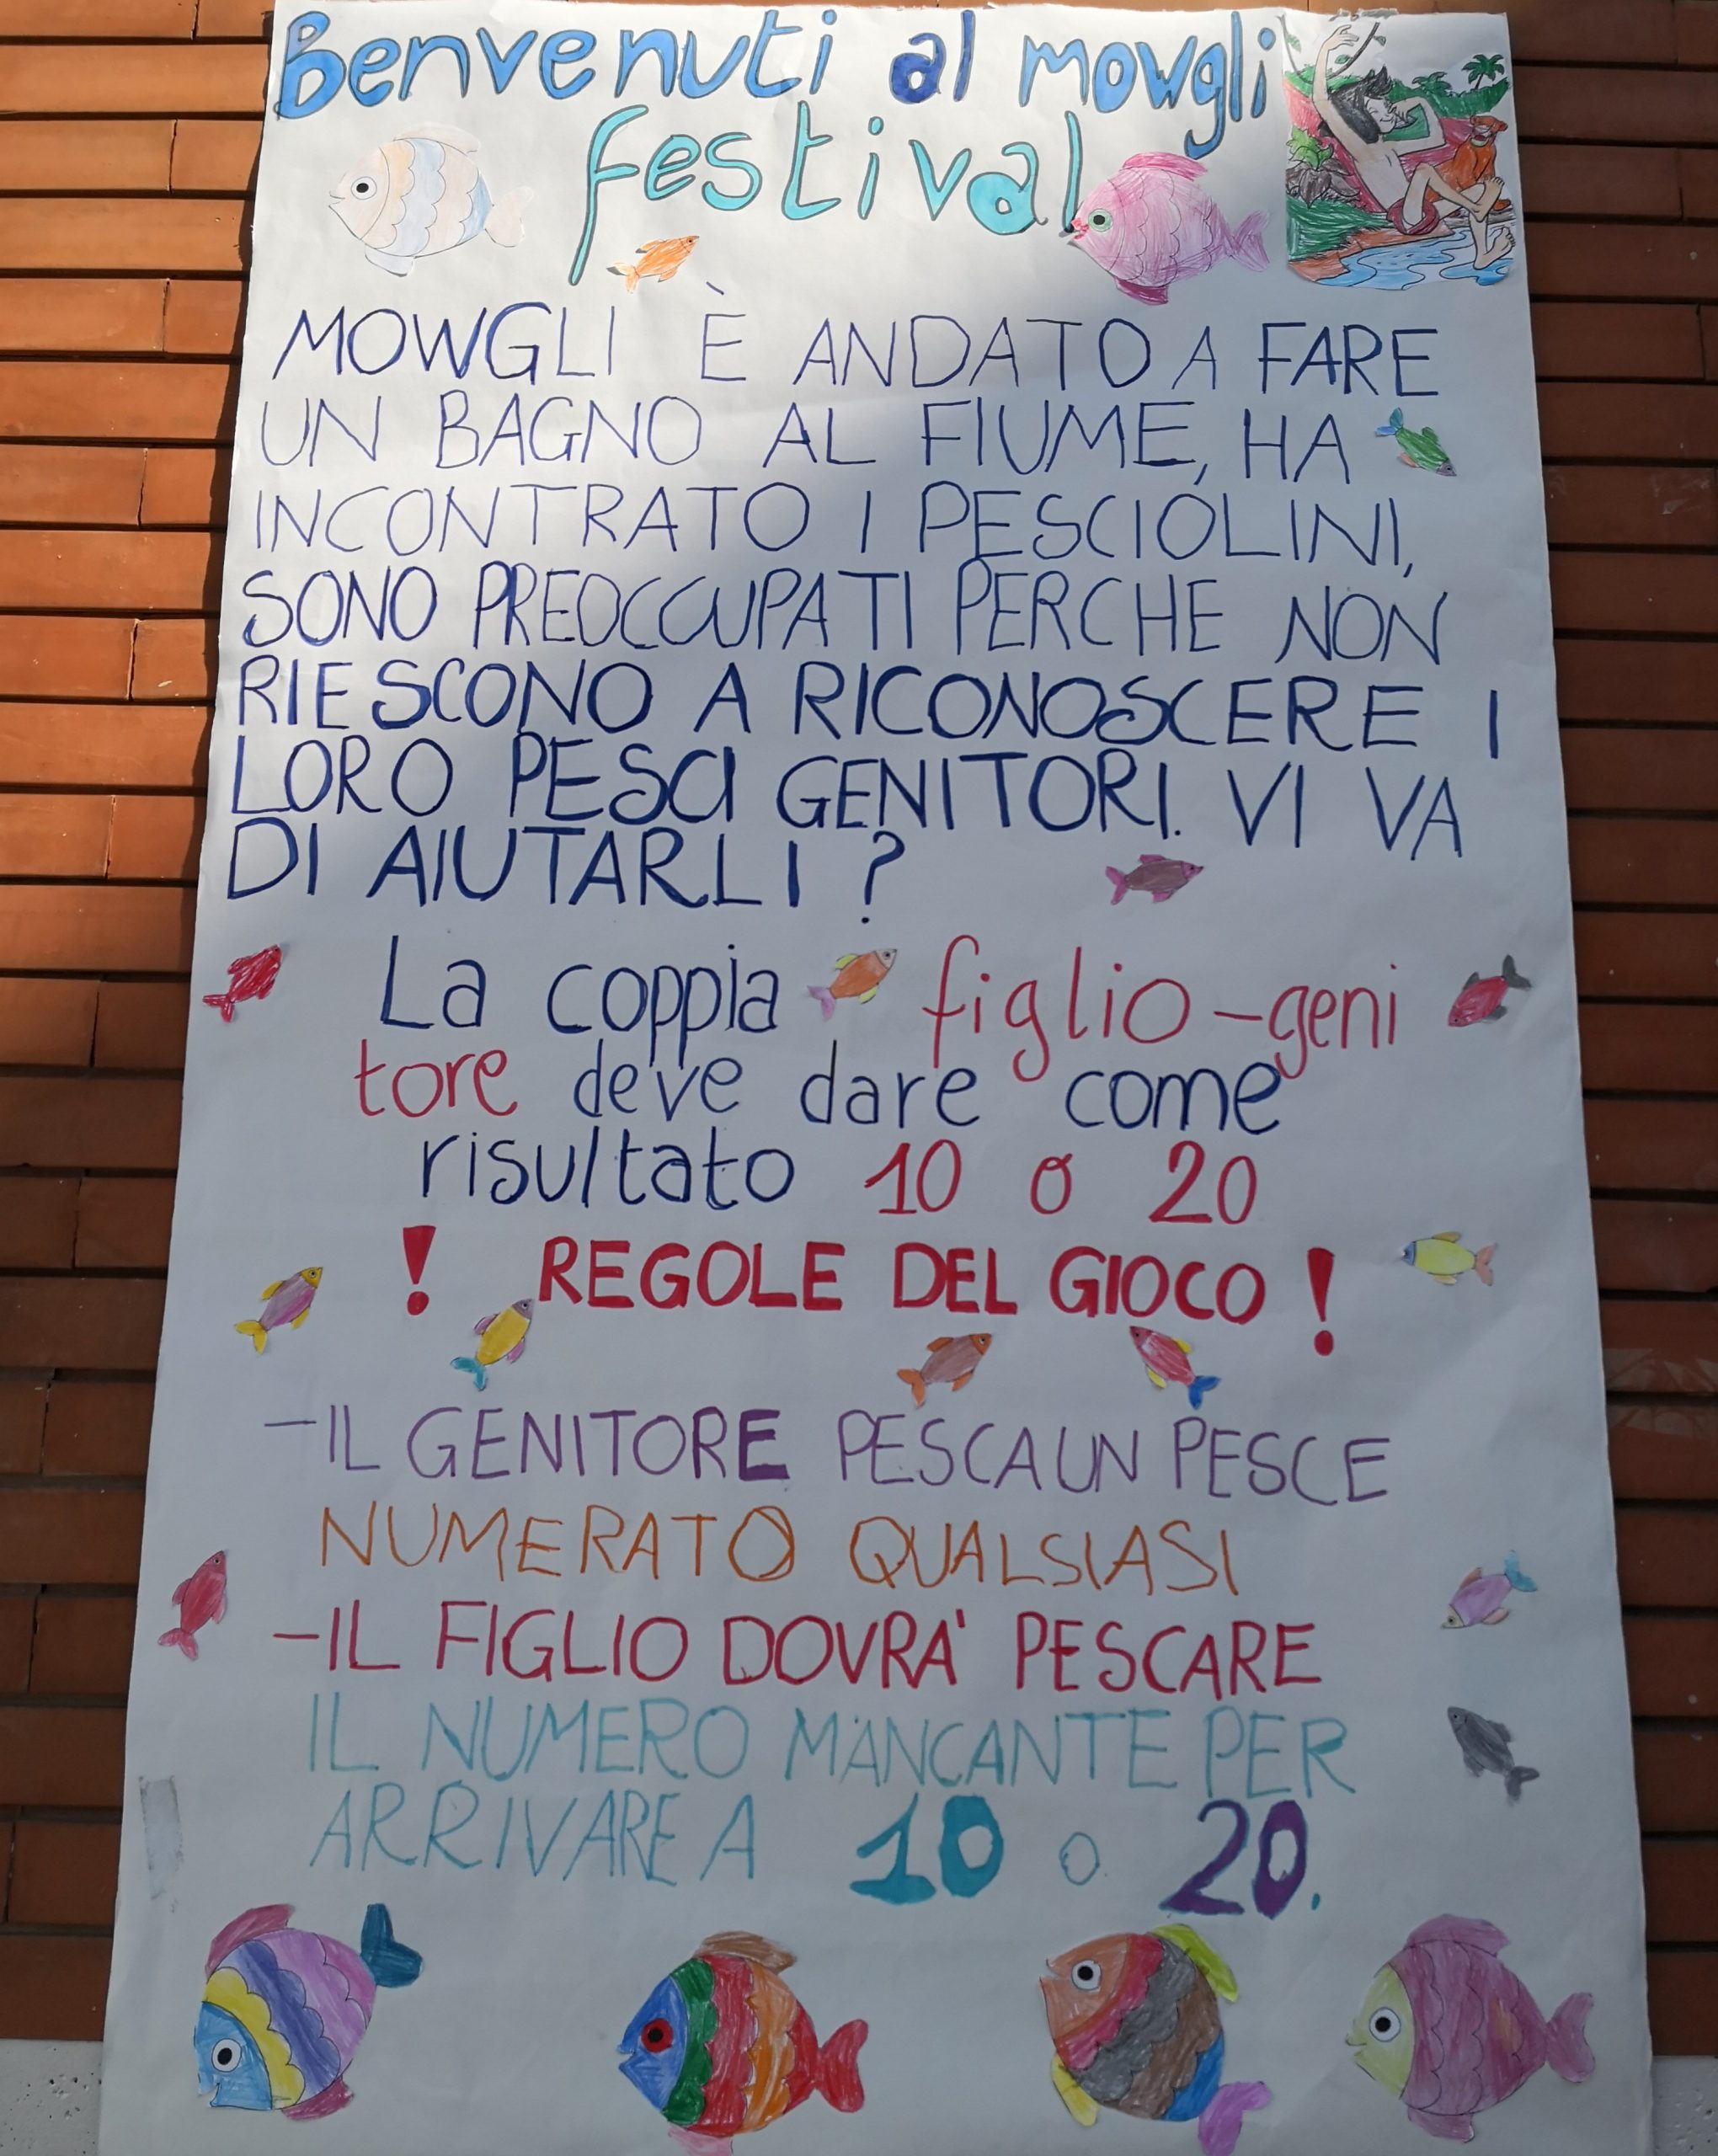 Benvenuti al mowgli
festival
MOWGLI È ANDATO A FARE
UN BAGNO AL FIUME, HA
INCONTRATO I PESCIOLINI,
SONO PREOCCUPATI PERCHE NON
RIESCONO A RICONOSCERE I
LORO PESCI GENITORI. VI VA
DI AIUTARLI ?
La coppia figlio-geni
tore deve dare come
risultato 10 o 20
! REGOLE DEL GIOCO !
-IL GENITORE PESCA UN PESCE
NUMERATO QUALSIASI
-IL FIGLIO DOVRA' PESCARE
IL NUMERO MANCANTE PER
ARRIVARE A 10 o 20.